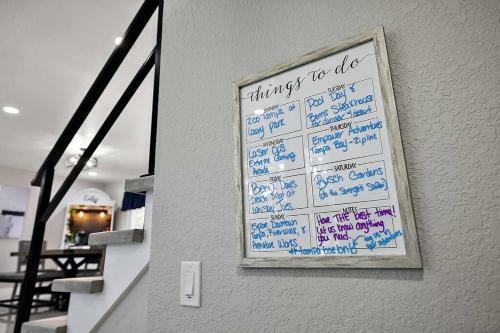 things to do
MONDAY
Zoo Tampa at
Lowry Park
TUESDAY
Pool Day &
Berns Steakhouse
for dinner & dessert
WEDNESDAY
Laser Ops
Extreme Gaming
Arcade
THURSDAY
Empower Adventures
Tampa Bay
-Zipline
FRIDAY
Ben T. Davis
Beach &
at
Whiskey Joe's
SATURDAY
Busch Gardens
SUNDAY
Explore Downtown
Tampa, Riverwalk, &
Armature Works
NOTES
Have THE best time!
Let us know anything
you need.